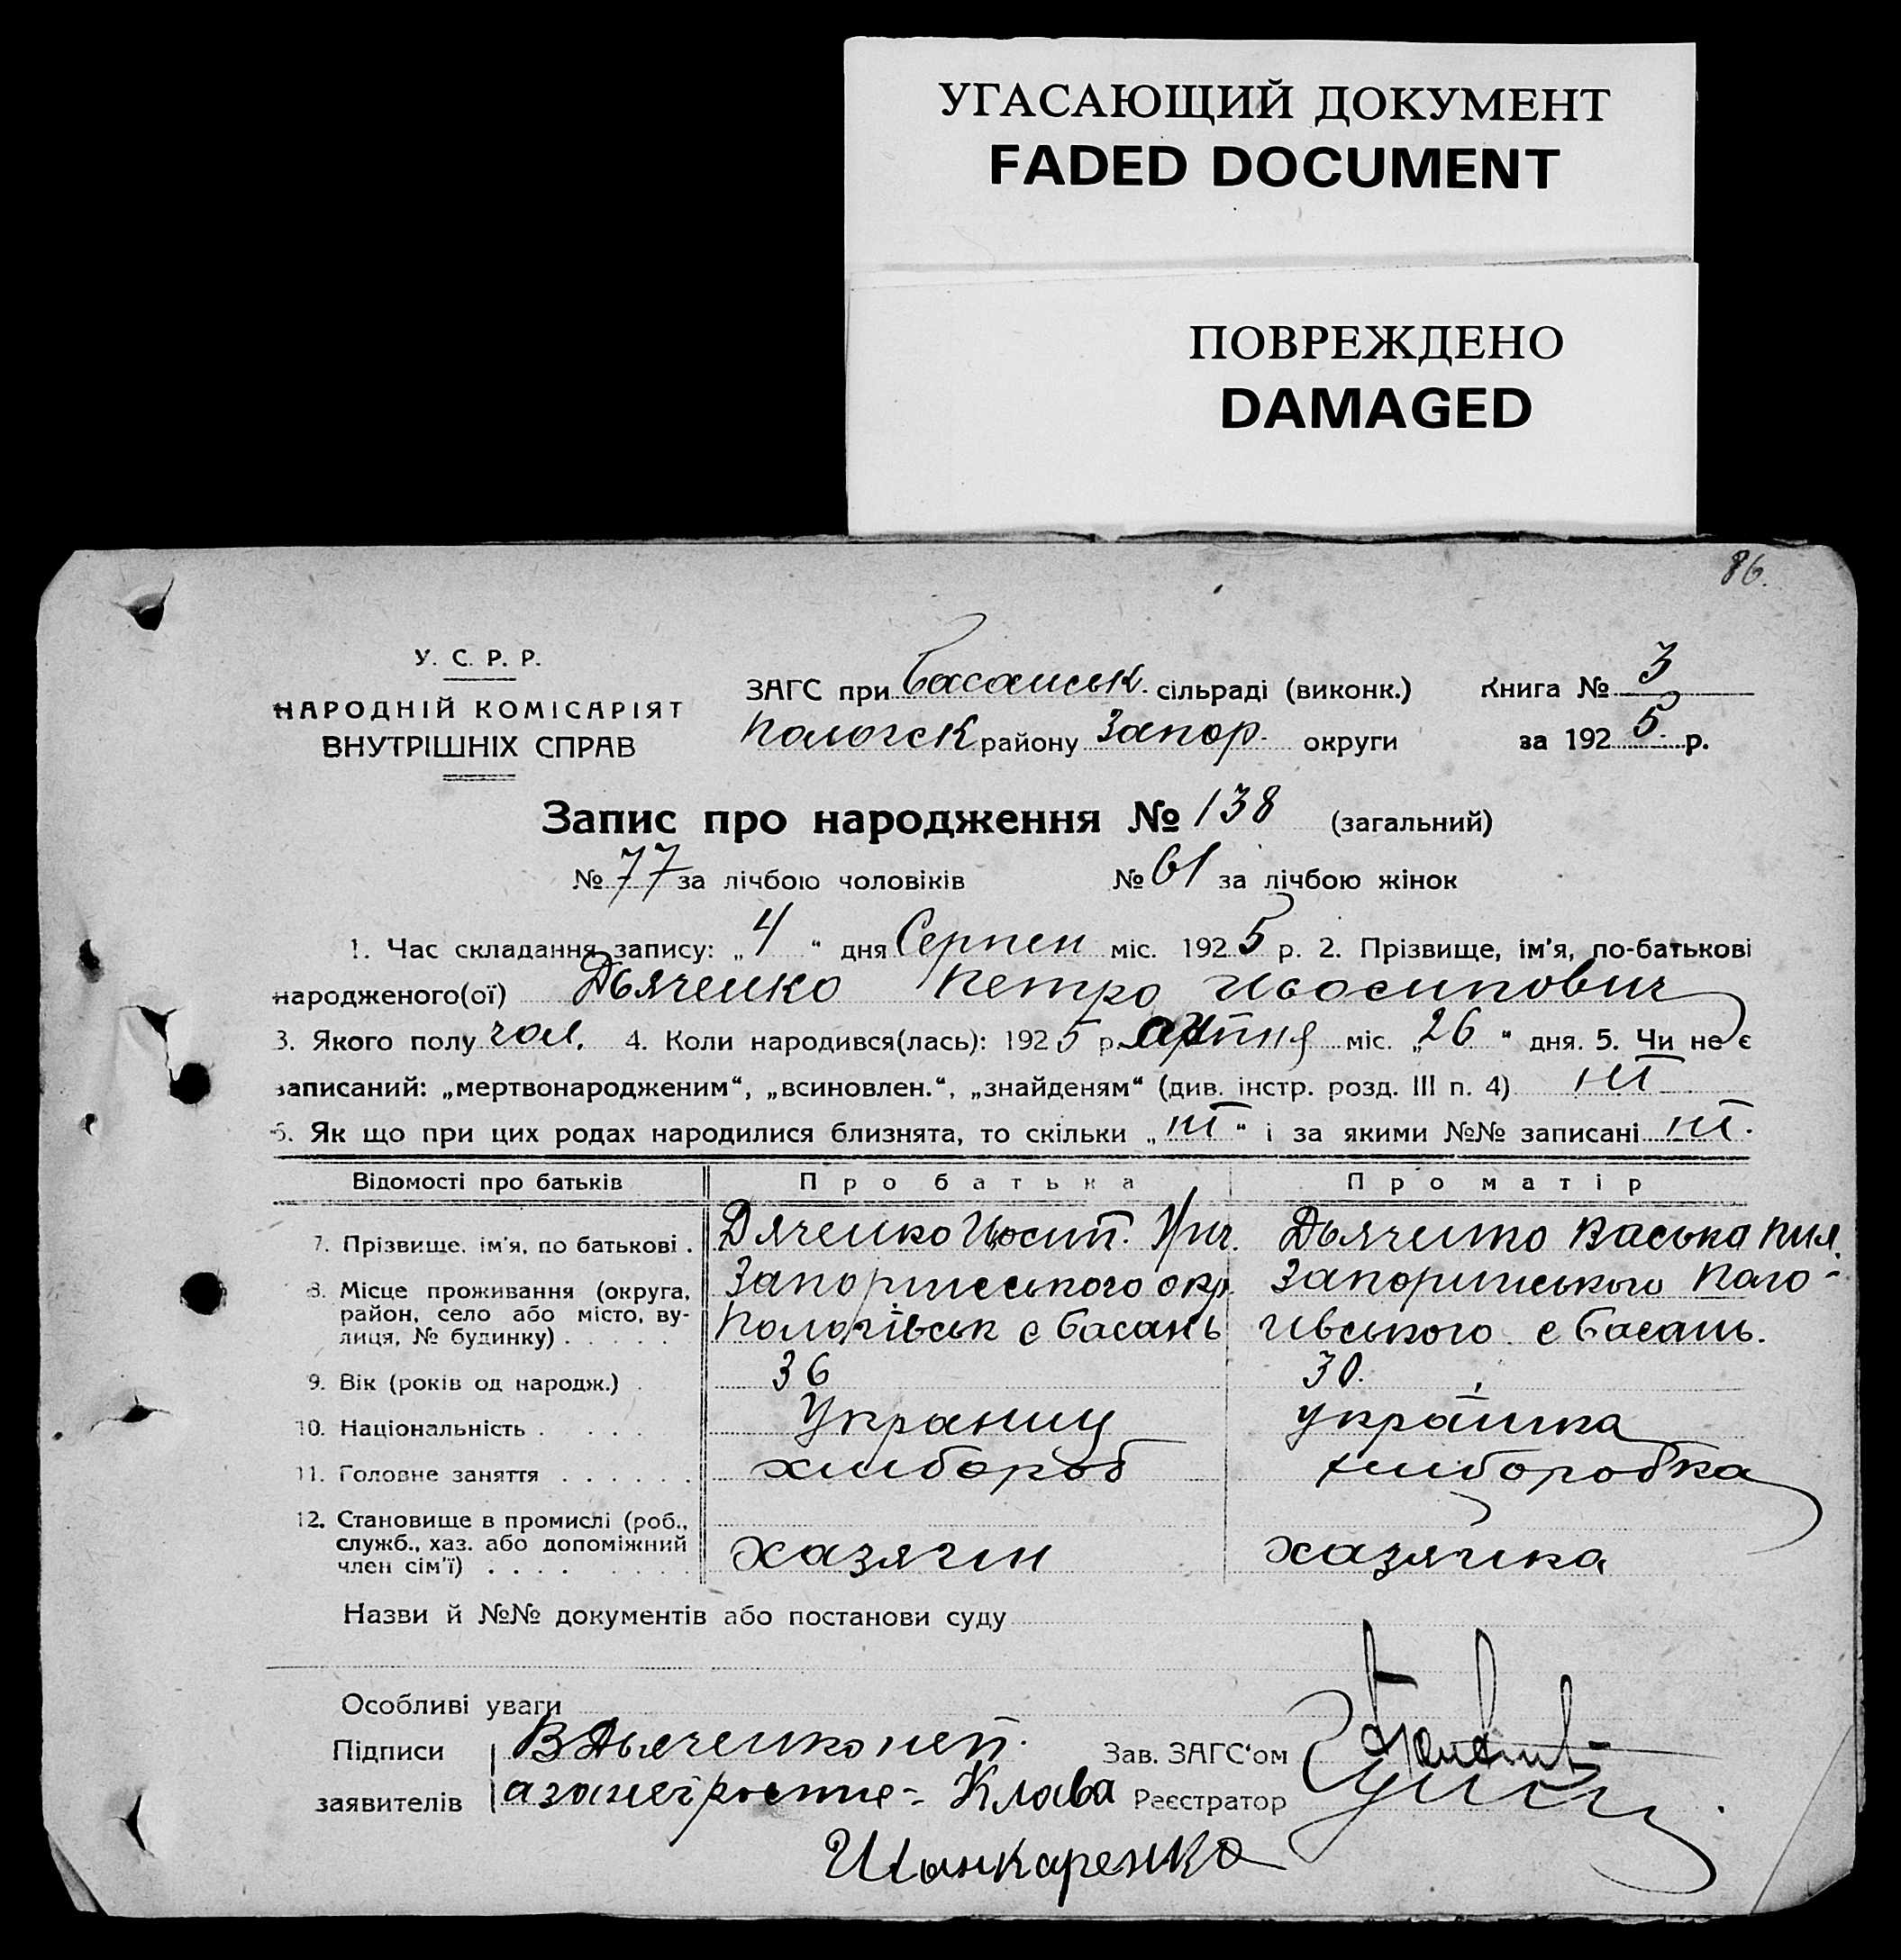 УГАСАЮЩИЙ ДОКУМЕНТ
FADED DOCUMENT
ПОВРЕЖДЕНО
DAMAGED
86.
У. С. Р. Р.
НАРОДНІЙ КОМІСАРІЯТ
ВНУТРІШНІХ СПРАВ
ЗАГС при Басанськ. сільраді (виконк.) Книга № 3
Пологск району Запор. округи за 1925 р.
Запис про народження № 138 (загальний)
№ 77 за лічбою чоловіків № 61 за лічбою жінок
1. Час складання запису: „4“ дня Серпен міс. 1925 р. 2. Прізвище, ім'я, по-батькові
народженого(ої) Дьяченко Петро Иосипович
3. Якого полу чол. 4. Коли народився(лась): 1925 р. міс. „26“ дня. 5. Чи не є
записаний: „мертвонародженим“, „всиновлен.“, „знайденям“ (див. інстр. розд. III п. 4) ні
6. Як що при цих родах народилися близнята, то скільки „ні“ і за якими №№ записані ні.
Відомості про батьків Про батька Про матір
7. Прізвище, ім'я, по батькові . Дяченко Иосип. Дьяченко Васька Пил.
8. Місце проживання (округа, район, село або місто, вулиця, № будинку) . . . . .
Запоріжського окр. Запоріжського Поло-
Пологівськ с Басань гівського с Басань.
9. Вік (років од народж.) . 36 30.
10. Національність . . . . Українц українка
11. Головне заняття . . . . . . хлибороб хлиборобка
12. Становище в промислі (роб., служб., хаз. або допоміжний член сім'ї) . . . . . . . .
хазяин хазяйка
Назви й №№ документів або постанови суду
Особливі уваги
Підписи В Дьяченко неп. Зав. ЗАГС'ом
заявителів а за неї росписа- Клава Реєстратор
Шынкаренко